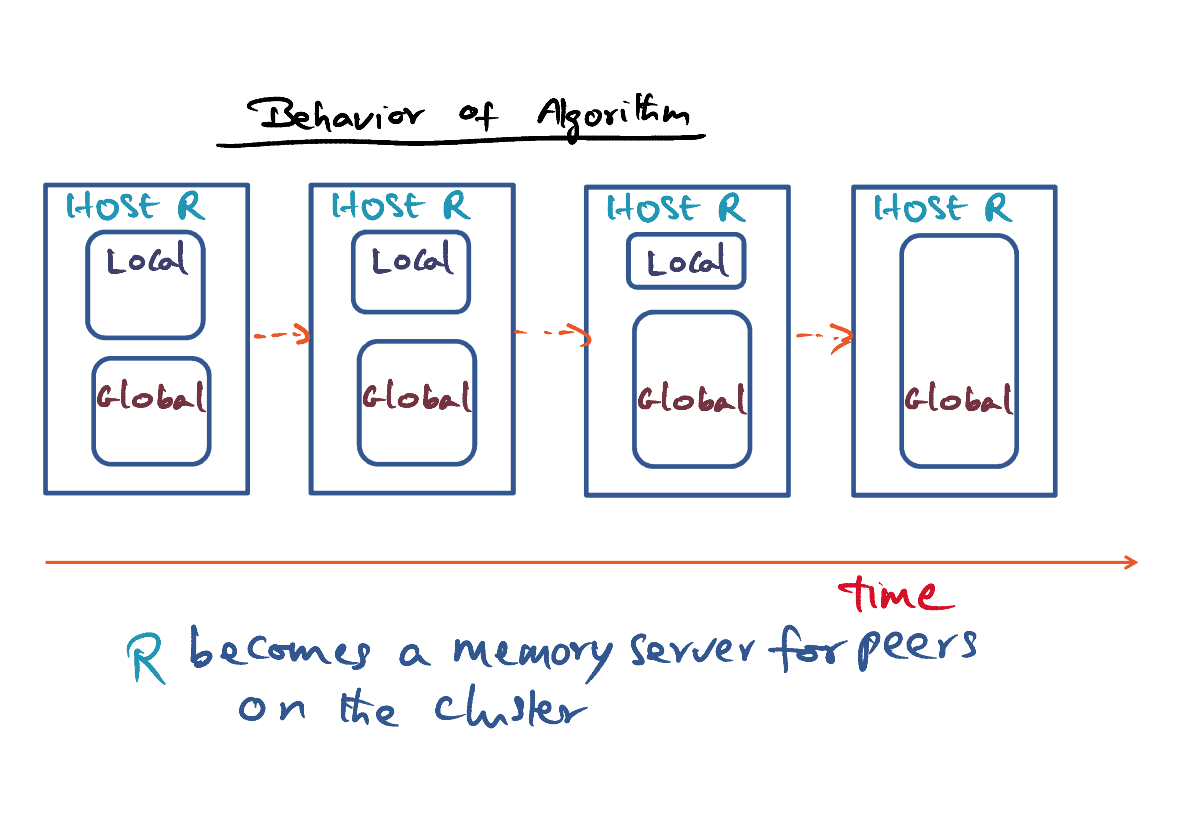 Behavior of Algorithm
HOST R
Local
Global
HOST R
Local
Global
HOST R
Local
Global
HOST R
Global
time
R becomes a memory server for peers
on the cluster